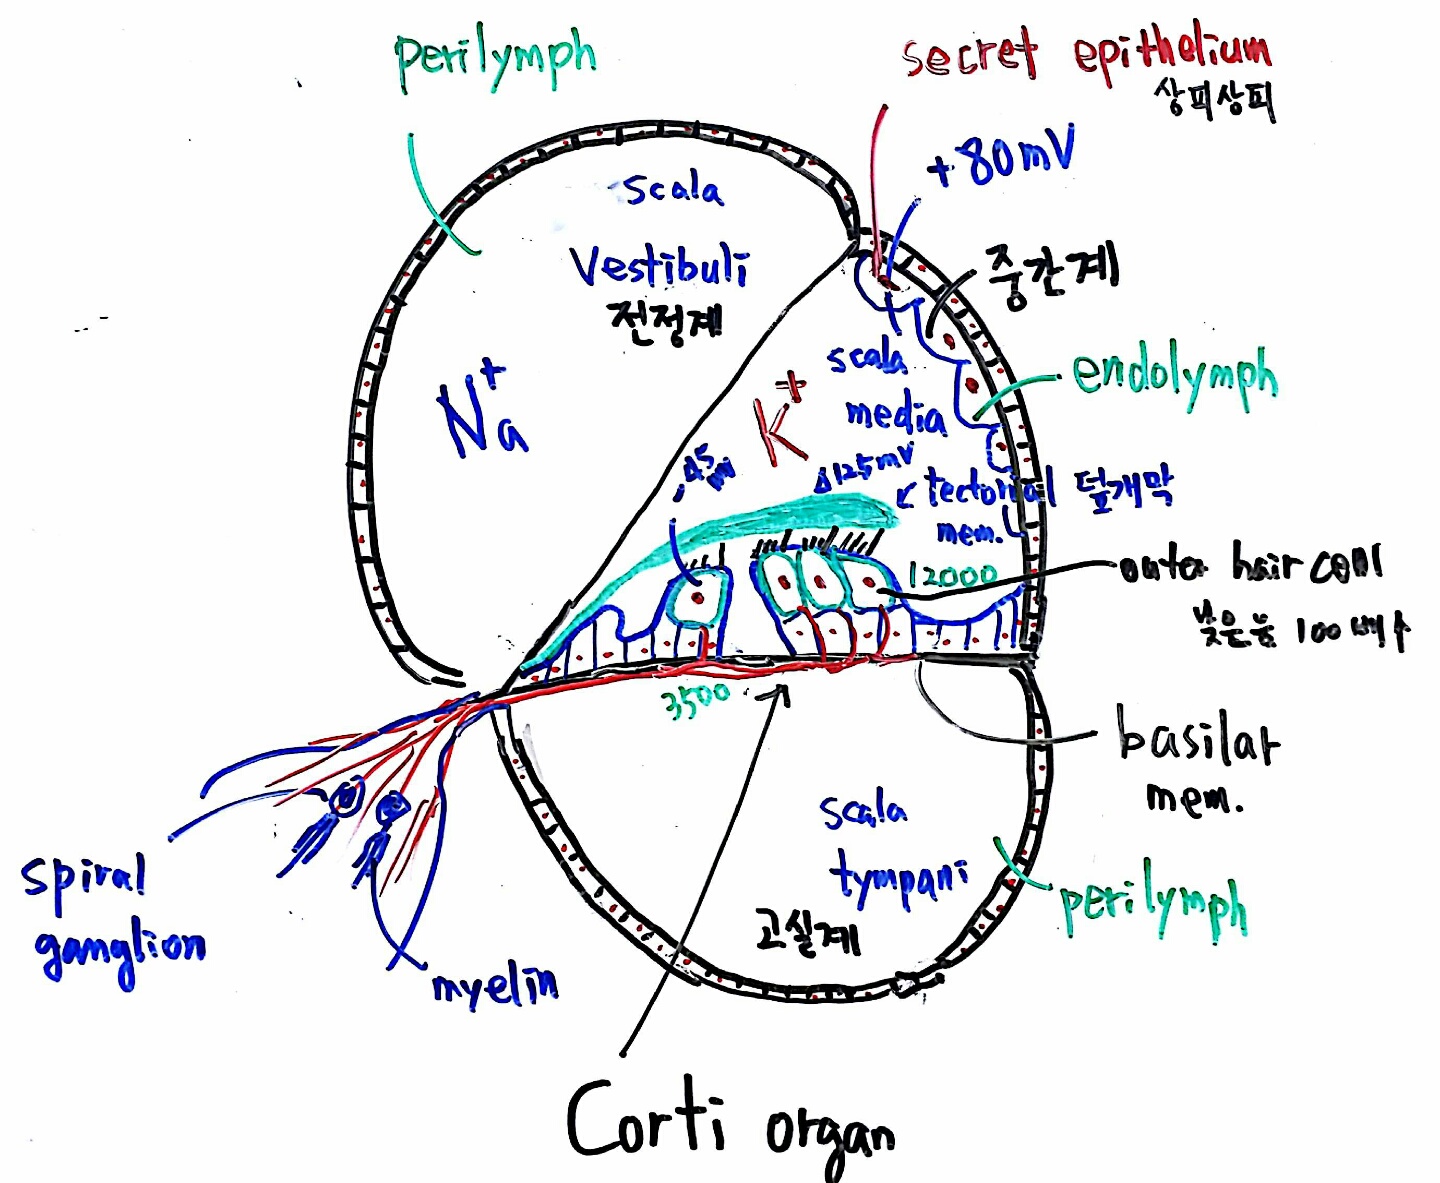 perilymph
secret epithelium
상피상피
+80mV
scala
vestibuli
전정계
중간계
Na+
K+
scala
media
endolymph
Δ125mV
tectorial 덮개막
mem.
12000
outer hair cell
3500
basilar
mem.
scala
tympani
고실계
perilymph
spiral
ganglion
myelin
Corti organ